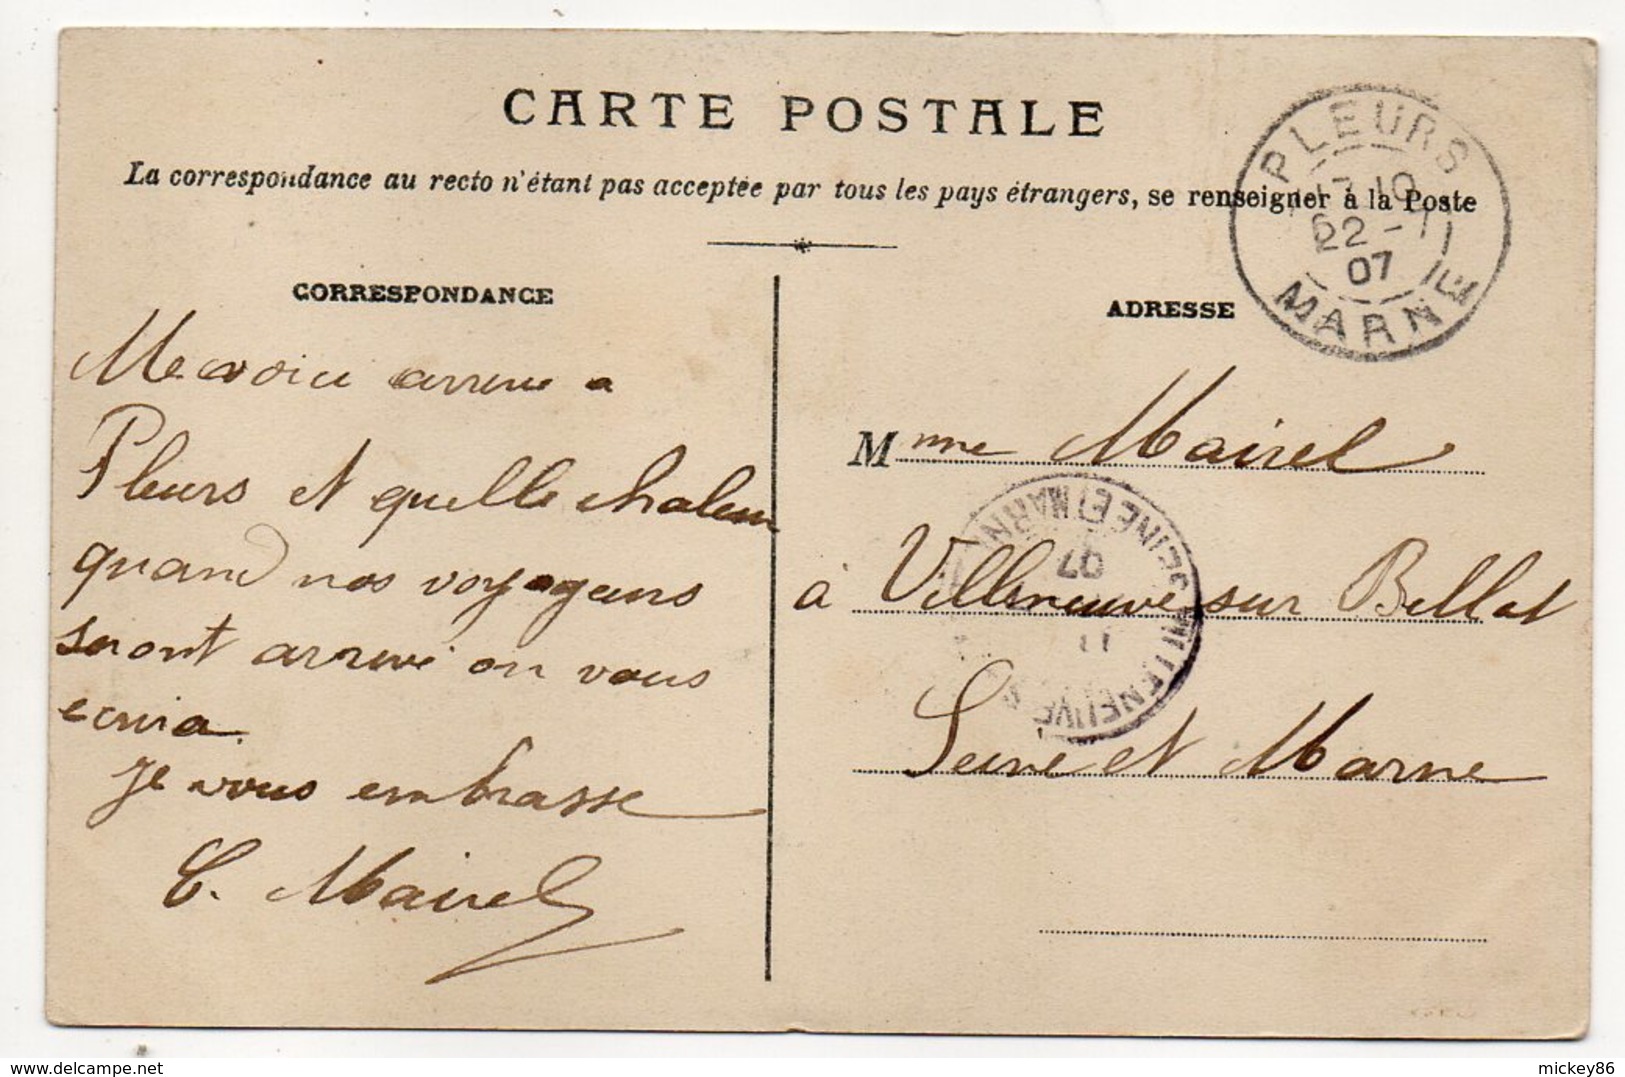 CARTE POSTALE
La correspondance au recto n'étant pas acceptée par tous les pays étrangers, se renseigner à la Poste
PLEURS
17 10
22 - 7
07
MARNE
CORRESPONDANCE
Me voici arrivé a
Pleurs et quelle chaleur
quand nos voyageurs
seront arrivé on vous
ecrira.
Je vous embrasse
C. Mairel
ADRESSE
Mme Mairel
à Villeneuve sur Bellot
Seine et Marne
VILLENEUVE
SEINE ET MARNE
11
07
delcampe.net
mickey86